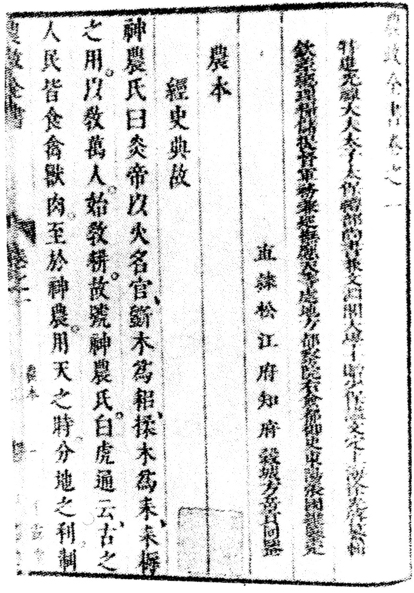 農政全書卷之一
特進光祿大夫太子太保禮部尚書兼文淵閣大學士贈少保諡文定上海徐光啓纂輯
欽差總理糧儲提督軍務兼巡撫應天等處地方都察院右僉都御史東陽張國維鑒定
直隸松江府知府穀城方岳貢同鑒
農本
經史典故
神農氏曰炎帝以火名官、斵木爲耜、揉木爲耒、耒耨
之用。以敎萬人。始敎耕。故號神農氏。白虎通云、古之
人民皆食禽獸肉。至於神農。用天之時。分地之利。制
農政全書
卷之一
農本
一